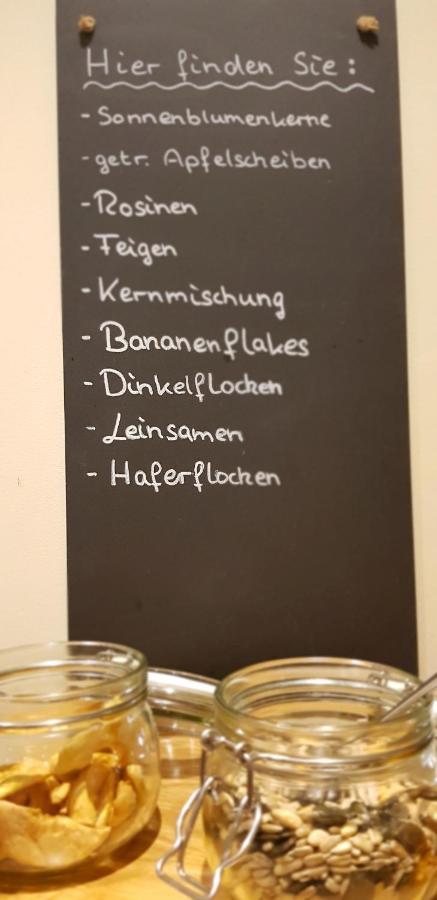 Hier finden Sie:
- Sonnenblumenkerne
- getr. Apfelscheiben
- Rosinen
- Feigen
- Kernmischung
- Bananenflakes
- Dinkelflocken
- Leinsamen
- Haferflocken